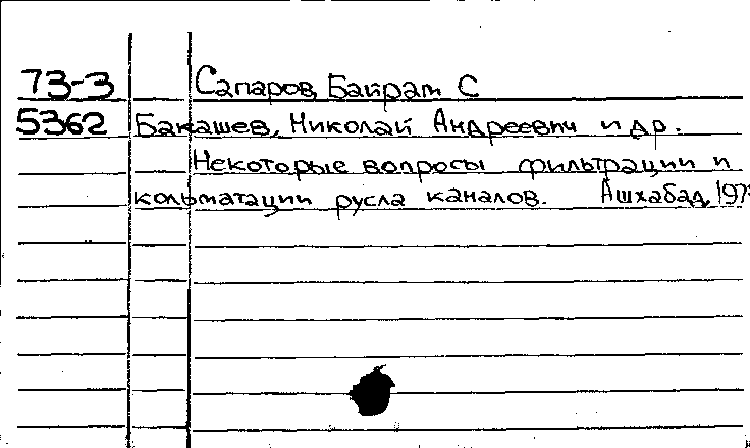 73-3 Сапаров, Байрам С
5362 Бакашев, Николай Андреевич и др.
Некоторые вопросы фильтрации и
кольматации русла каналов. Ашхабад, 197